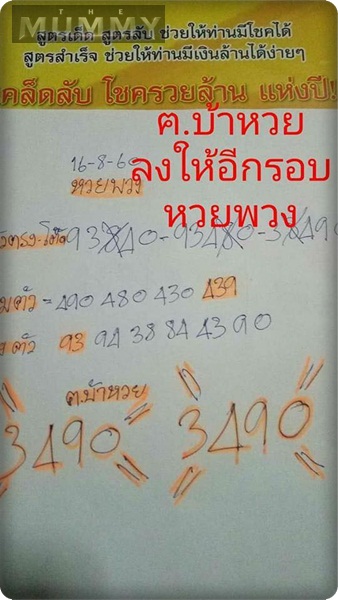 THE
MUMMY
สูตรเด็ด สูตรลับ ช่วยให้ท่านมีโชคได้
สูตรสำเร็จ ช่วยให้ท่านมีเงินล้านได้ง่ายๆ
คล็ดลับ โชครวยล้าน แห่งปี!
ต.บ้าหวย
16-8-60
ลงให้อีกรอบ
หวยพวง
หวยพวง
93840-93480-38490
มตัว = 490 480 430 439
ตัว 93 94 38 84 43 90
ต.บ้าหวย
3490 3490